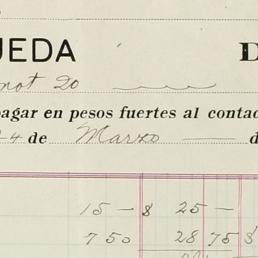 UEDA D
not 20
pagar en pesos fuertes al contad
24 de Marzo — d
15 — $ 25 —
7 50 28 75 $